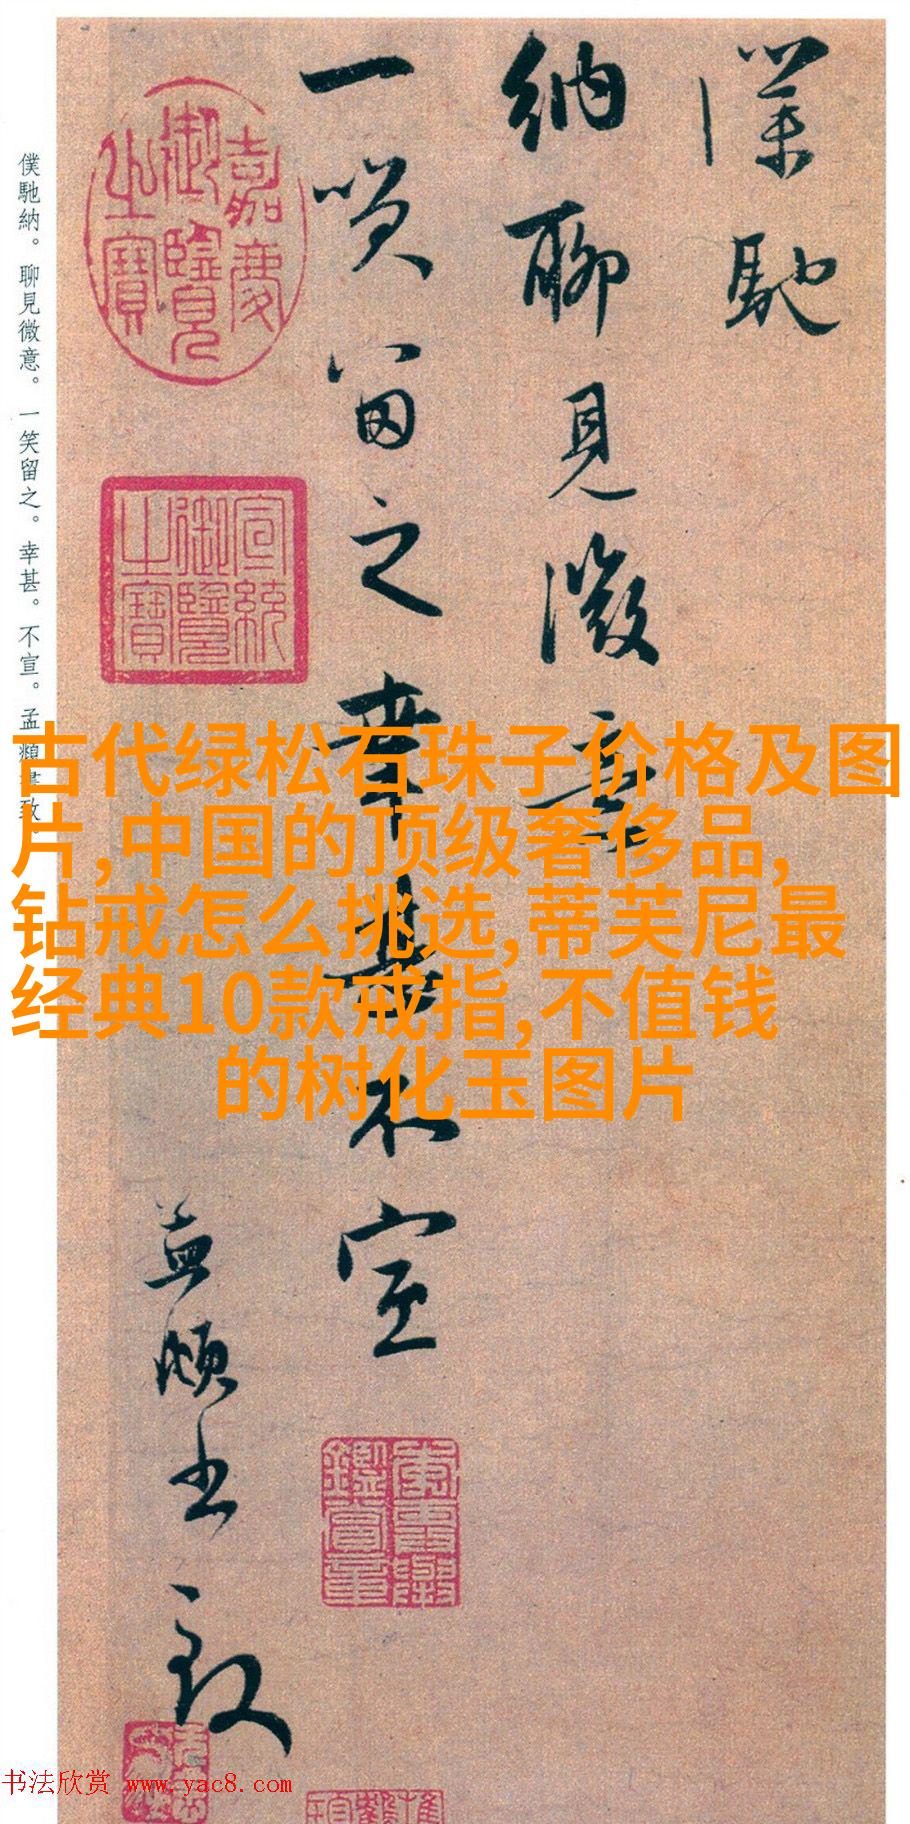 僕馳
納聊見微意
一笑留之幸甚不宣
孟頫書致
嘉慶御覽之寶
宣統御覽之寶
僕馳納。聊見微意。一笑留之。幸甚。不宣。孟頫書致
古代绿松石珠子价格及图
片,中国的顶级奢侈品,
钻戒怎么挑选,蒂芙尼最
经典10款戒指,不值钱
的树化玉图片
书法欣赏 www.yac8.com